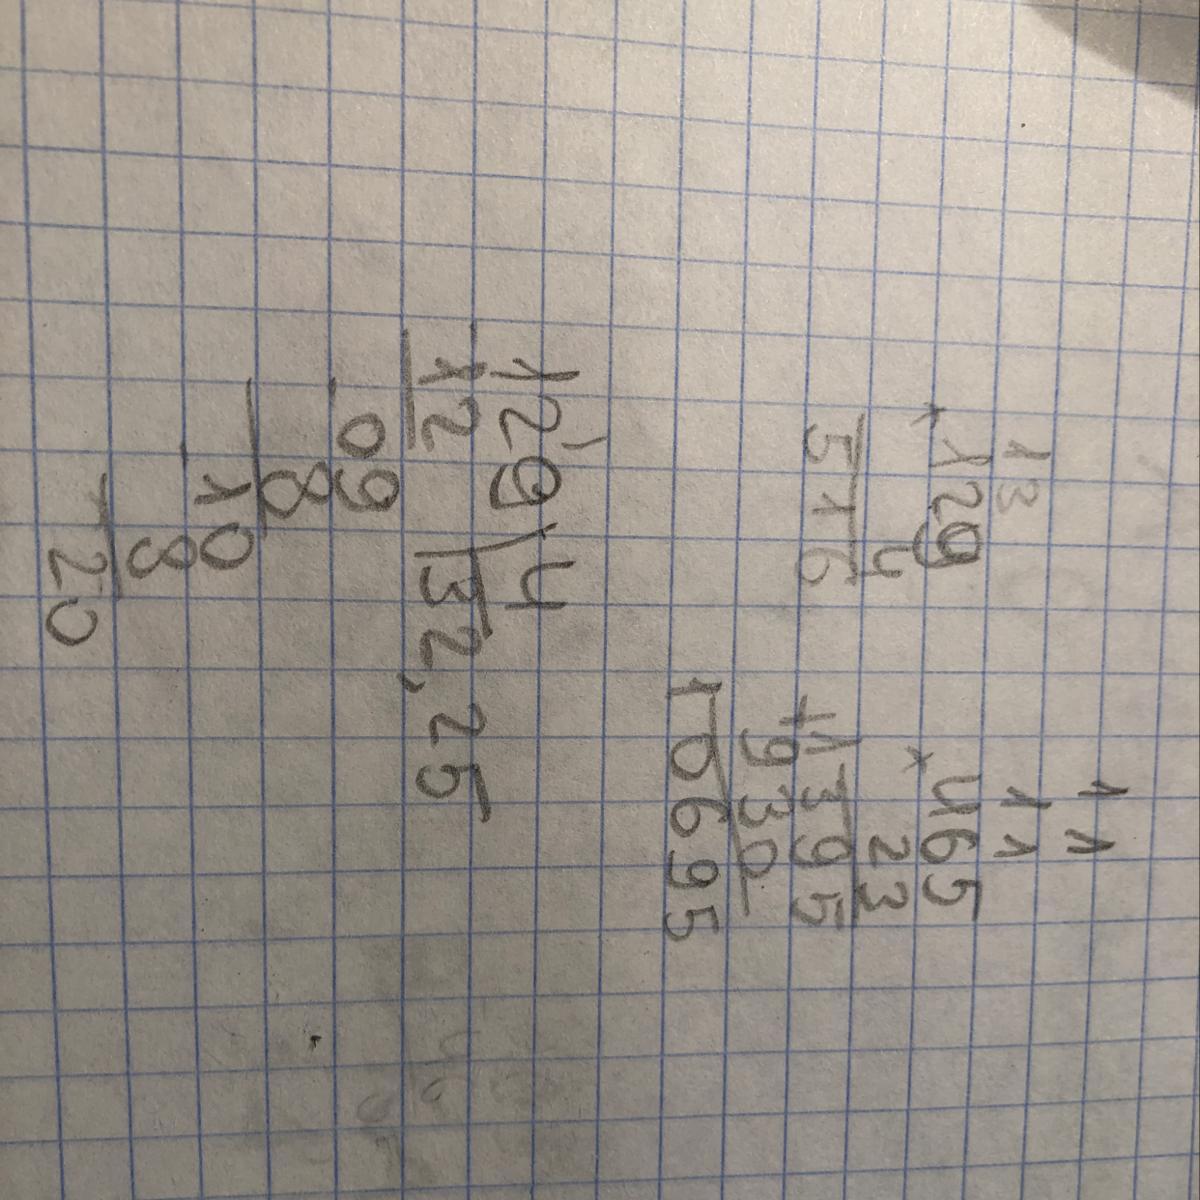 13
× 129
4
516
11
11
× 465
23
1395
+ 930
10695
129 4
- 12 32,25
- 09
8
- 10
8
- 20